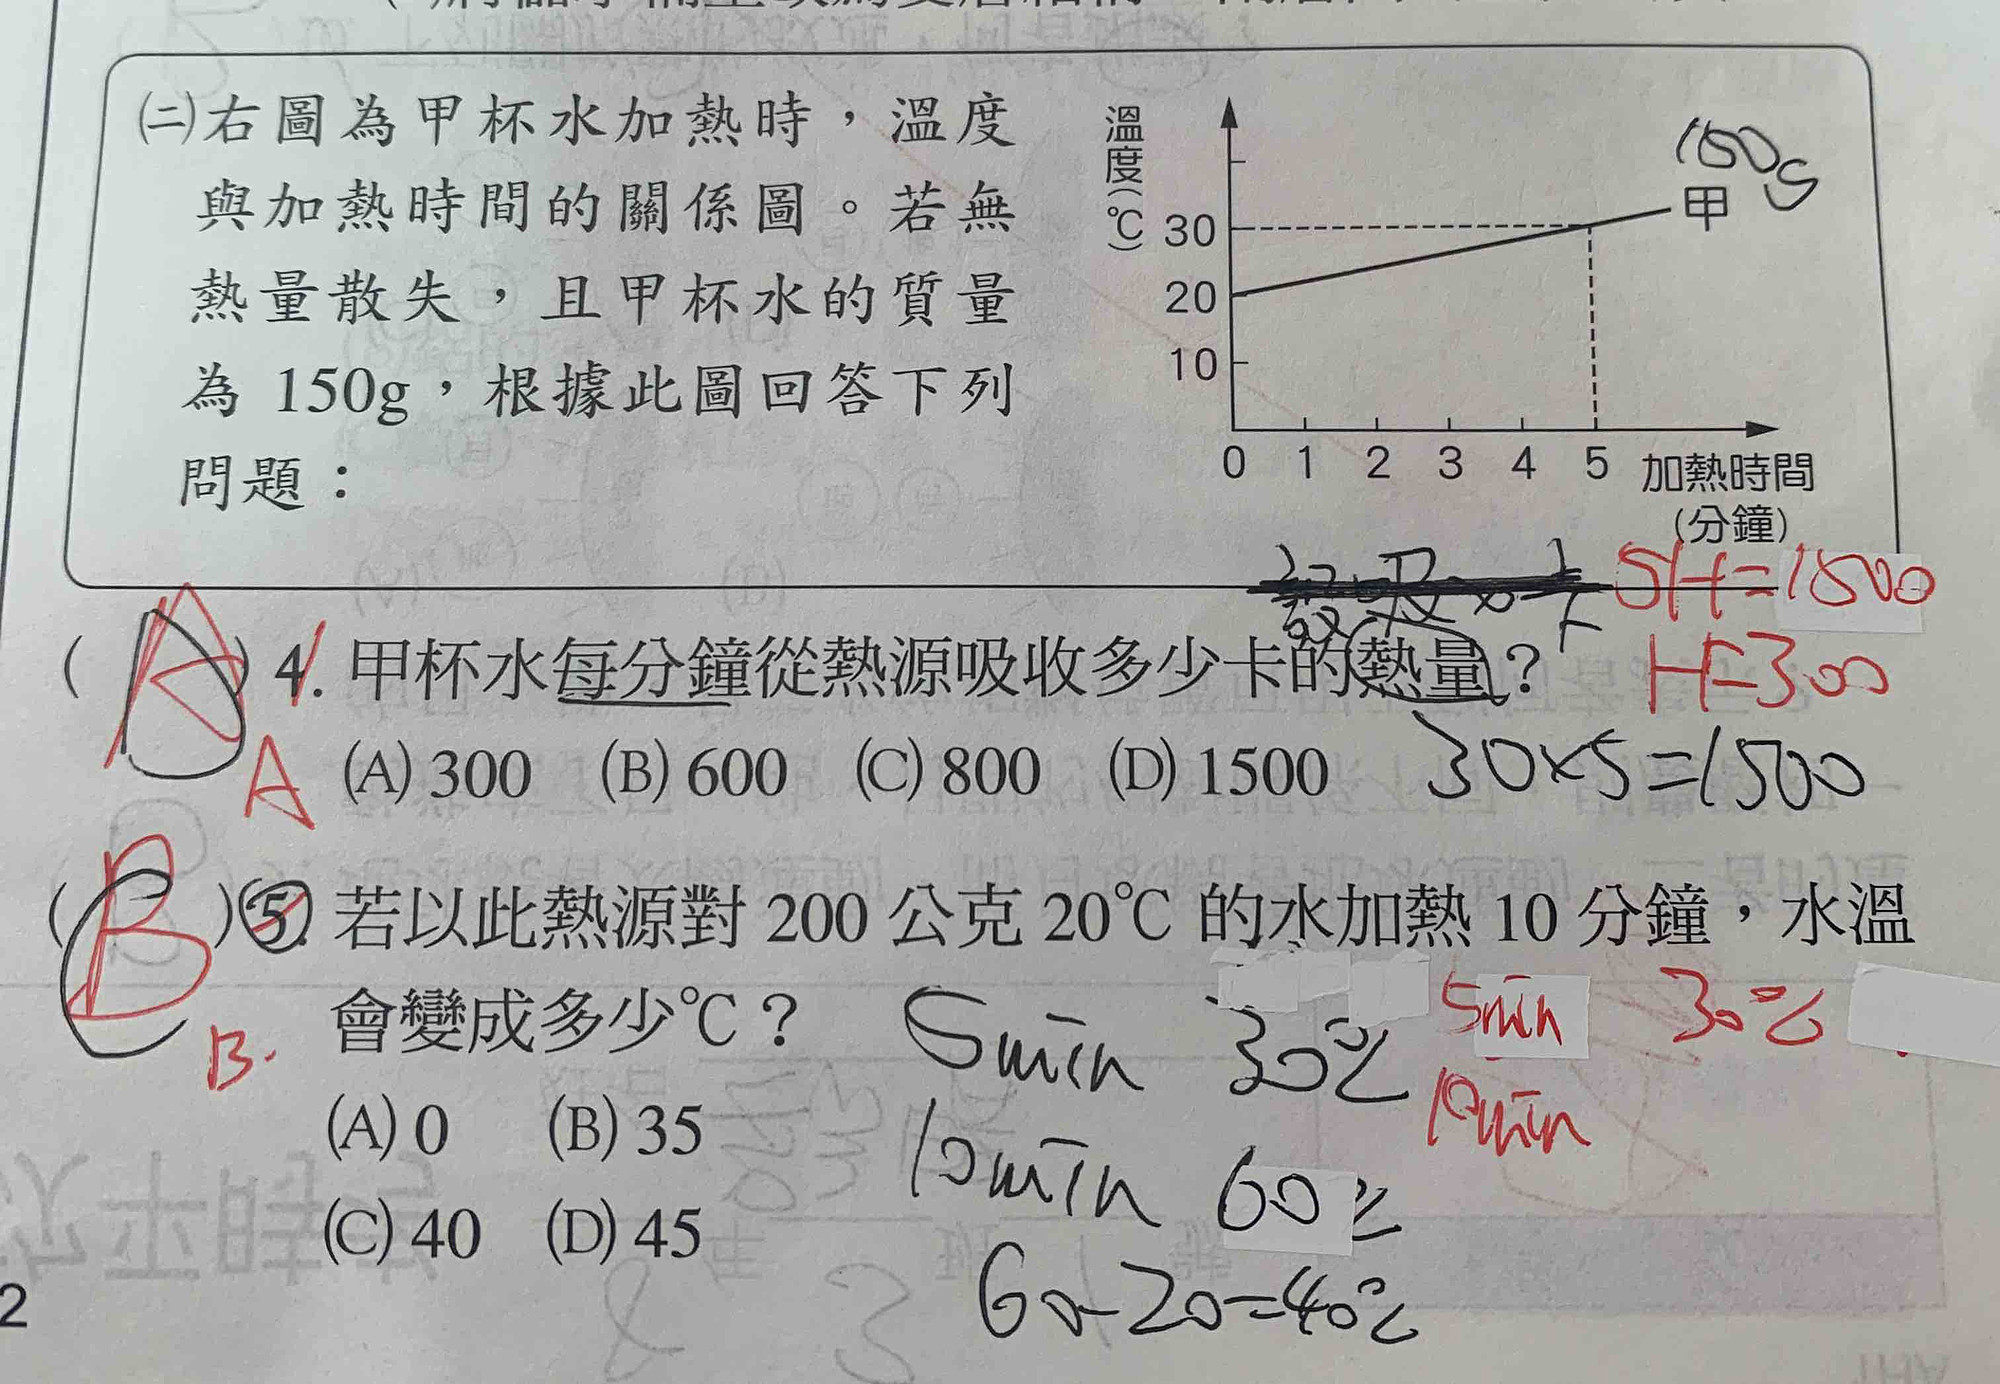 ㈡右圖為甲杯水加熱時，溫度
與加熱時間的關係圖。若無
熱量散失，且甲杯水的質量
為 150g，根據此圖回答下列
問題：
溫度(℃)
30
20
10
0 1 2 3 4 5
加熱時間
(分鐘)
甲
5H=1500
H=300
( A ) 4. 甲杯水每分鐘從熱源吸收多少卡的熱量？
A
(A) 300 (B) 600 (C) 800 (D) 1500
30×5=1500
( B ) 5. 若以此熱源對 200 公克 20℃ 的水加熱 10 分鐘，水溫
會變成多少℃？
B.
(A) 0 (B) 35
(C) 40 (D) 45
5min 30℃
10min 60℃
60-20=40℃
5min 30℃
10min
2